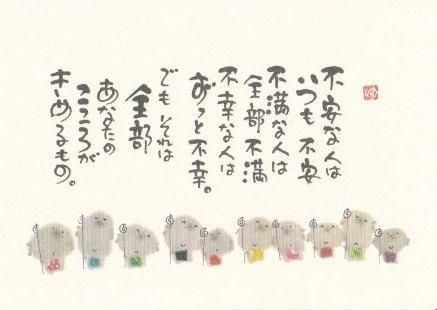 不安な人は
いつも 不安
不満な人は
全部 不満
不幸な人は
ずっと 不幸。
でも それは
全部
あなたの
こころが
きめるもの。